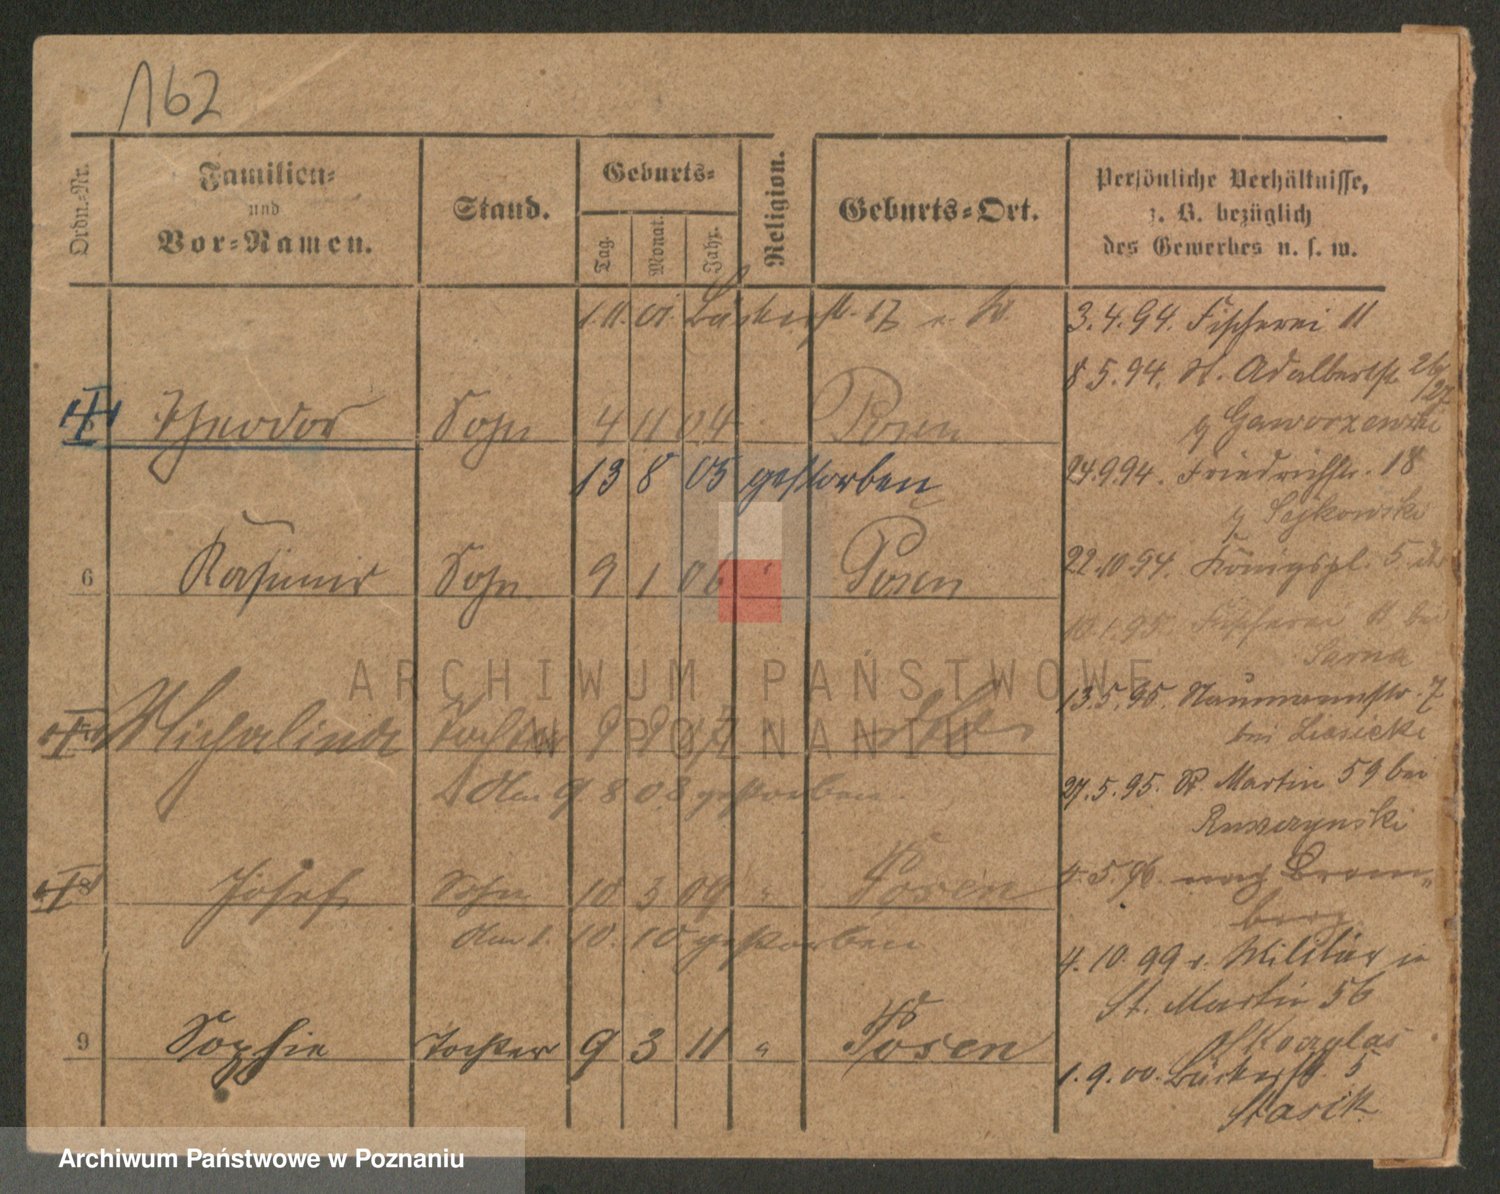 162
Ordn.-Nr.
Familien-
und
Vor-Namen.
Stand.
Geburts-
Tag.
Monat.
Jahr.
Religion.
Geburts-Ort.
Persönliche Verhältnisse,
z. B. bezüglich
des Gewerbes u. s. w.
1.11.01. Bäckerstr. 17
Theodor Sohn 4 11 04 Posen
13 8 05 gestorben
6 Kasimir Sohn 9 1 06 " Posen
Michalina Tochter 9 9 07
den 9 8 08 gestorben.
8 Josef Sohn 10 3 09 " Posen
den 1. 10. 10 gestorben
9 Sophie Tochter 9 3 11 " Posen
3.4.94. Fischerei 11
8.5.94. St. Adalbertstr. 26/27
Gaworzewski
24.9.94. Friedrichstr. 18
Sajkowski
22.10.94. Königspl. 5
10.1.95. Fischerei 11 bei
Sarna
13.5.95. Naumannstr. 7
bei Lisiecki
27.5.95. St. Martin 59 bei
4.5.96. nach Brom-
berg
4.10.99 v. Militär in
St. Martin 56
1.9.00. Bäckerstr. 5
Stasik
ARCHIWUM PAŃSTWOWE
W POZNANIU
Archiwum Państwowe w Poznaniu